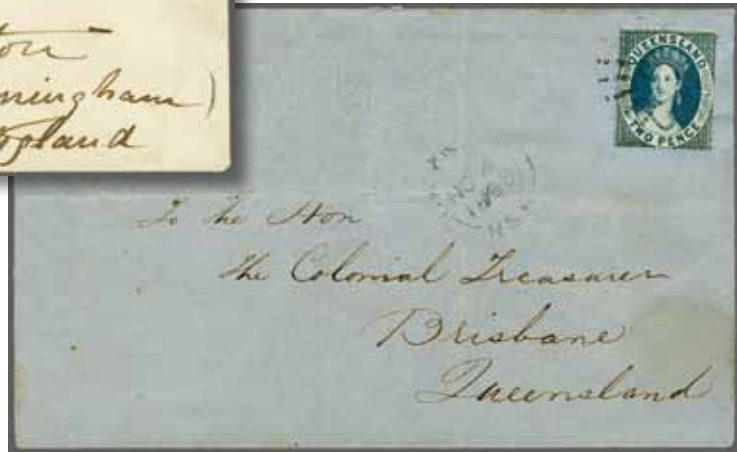 ton
mingham)
England
QUEENSLAND
TWO PENCE
NO
1860
NSW
To the Hon
the Colonial Treasurer
Brisbane
Queensland